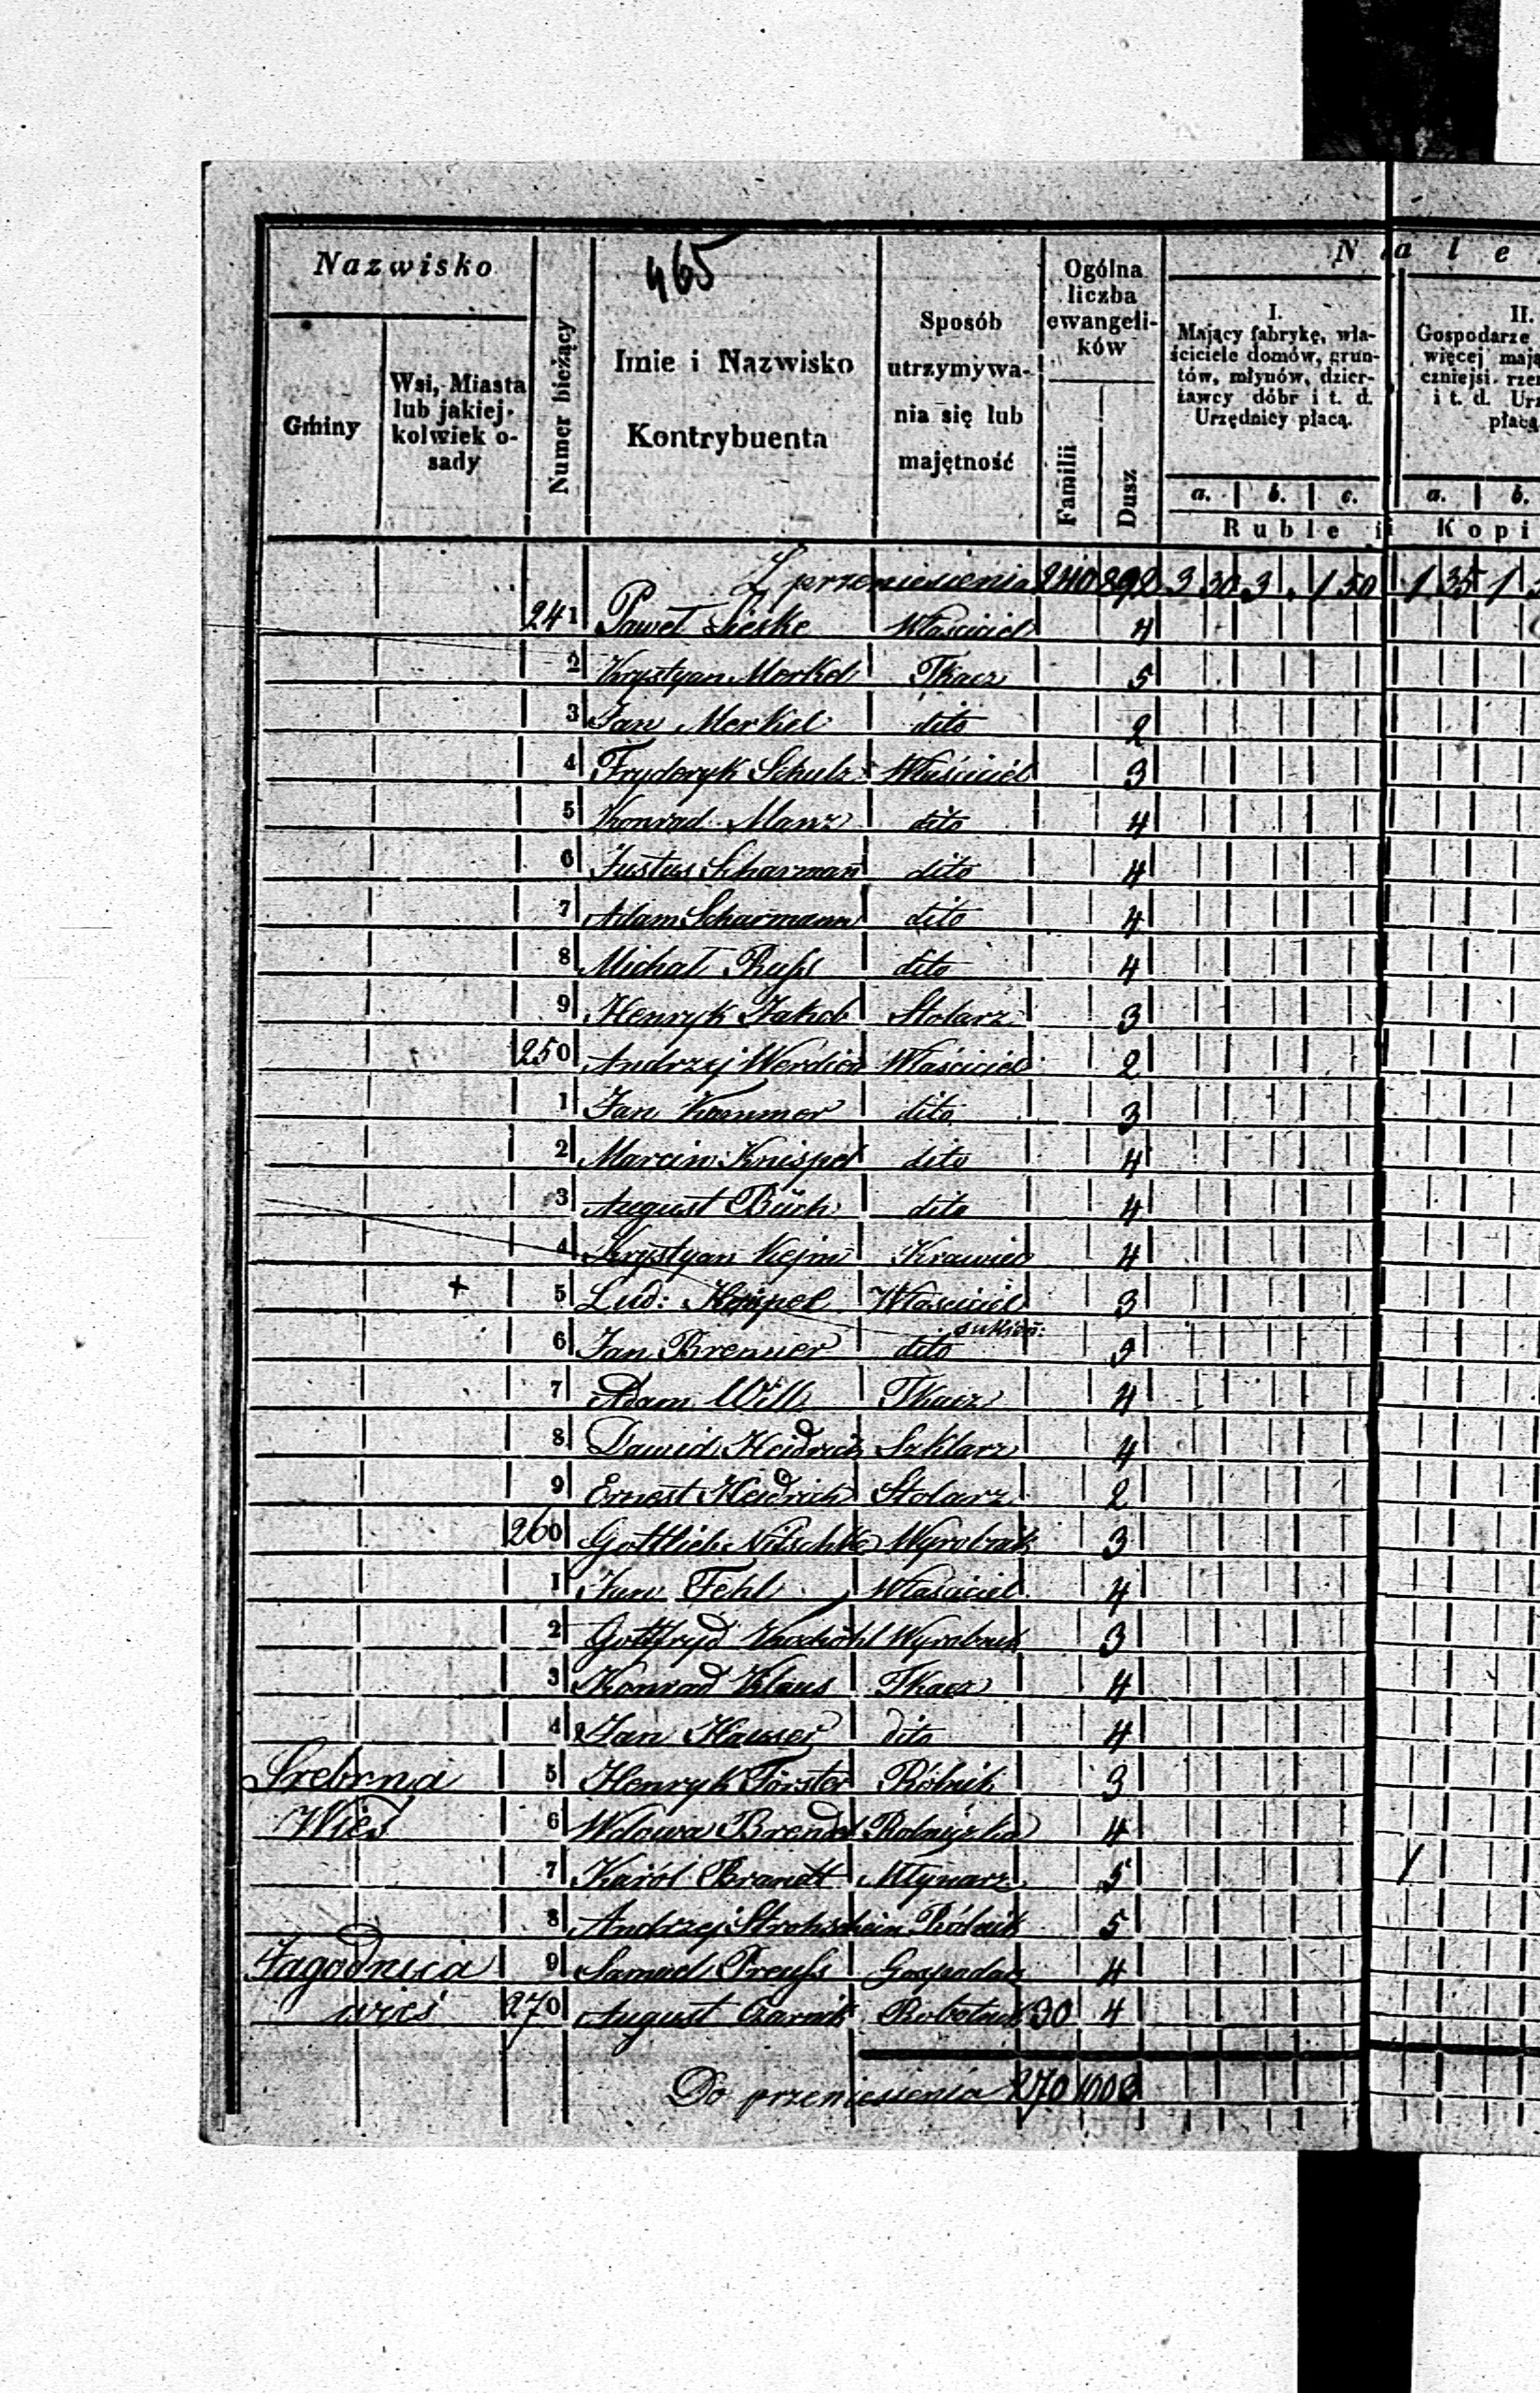 465
Nazwisko
Gminy
Wsi, Miasta
lub jakiej-
kolwiek o-
sady
Numer bieżący
Imie i Nazwisko
Kontrybuenta
Sposób
utrzymywa-
nia się lub
majętność
Ogólna
liczba
ewangeli-
ków
Familii
Dusz
N a l e
I.
Mający fabrykę, wła-
ściciele domów, grun-
tów, młynów, dzier-
żawcy dóbr i t. d.
Urzędnicy płacą.
a. b. c.
II.
Gospodarze
więcej mają
czniejsi rze
i t. d. Urz
płacą
a. b.
Ruble i Kopi
Z przeniesienia 240 892 3 30 3 . 1 50 1 35 1
241 Paweł Lieske Właściciel 4
2 Krystyan Merkel Tkacz 5
3 Jan Merkel dito 2
4 Fryderyk Schulz Właściciel 3
5 Konrad Manz dito 4
6 Justus Scharmañ dito 4
7 Adam Scharmann dito 4
8 Michał Ruſs dito 4
9 Henryk Jakob Stolarz 3
250 Andrzej Właściciel 2
1 Jan Kammer dito 3
2 Marcin Knispel dito 4
3 August dito 4
4 Krystyan Kejm Krawiec 4
+ 5 Lud: Właściciel 3
6 Jan Bremer dito sukień: 3
7 Adam Will Tkacz 4
8 Dawid Heidrich Szklarz 4
9 Ernest Heidrich Stolarz 2
260 Gottlieb Nitschke Wyrobnik 3
1 Jan Fehl Właściciel 4
2 Gottfryd Wyrobnik 3
3 Konrad Klaus Tkacz 4
4 Jan Hausser dito 4
Srebrna 5 Henryk Förster Rólnik 3
Wieś 6 Wdowa Brendel Rolniczka 4
7 Karól Brandt Młynarz 5 1
8 Andrzej Strohschein Rólnik 5
Jagodnica 9 Samuel Preuſs Gospodarz 4
wieś 270 August Czarnik Robotnik 30 4
Do przeniesienia 270 1002